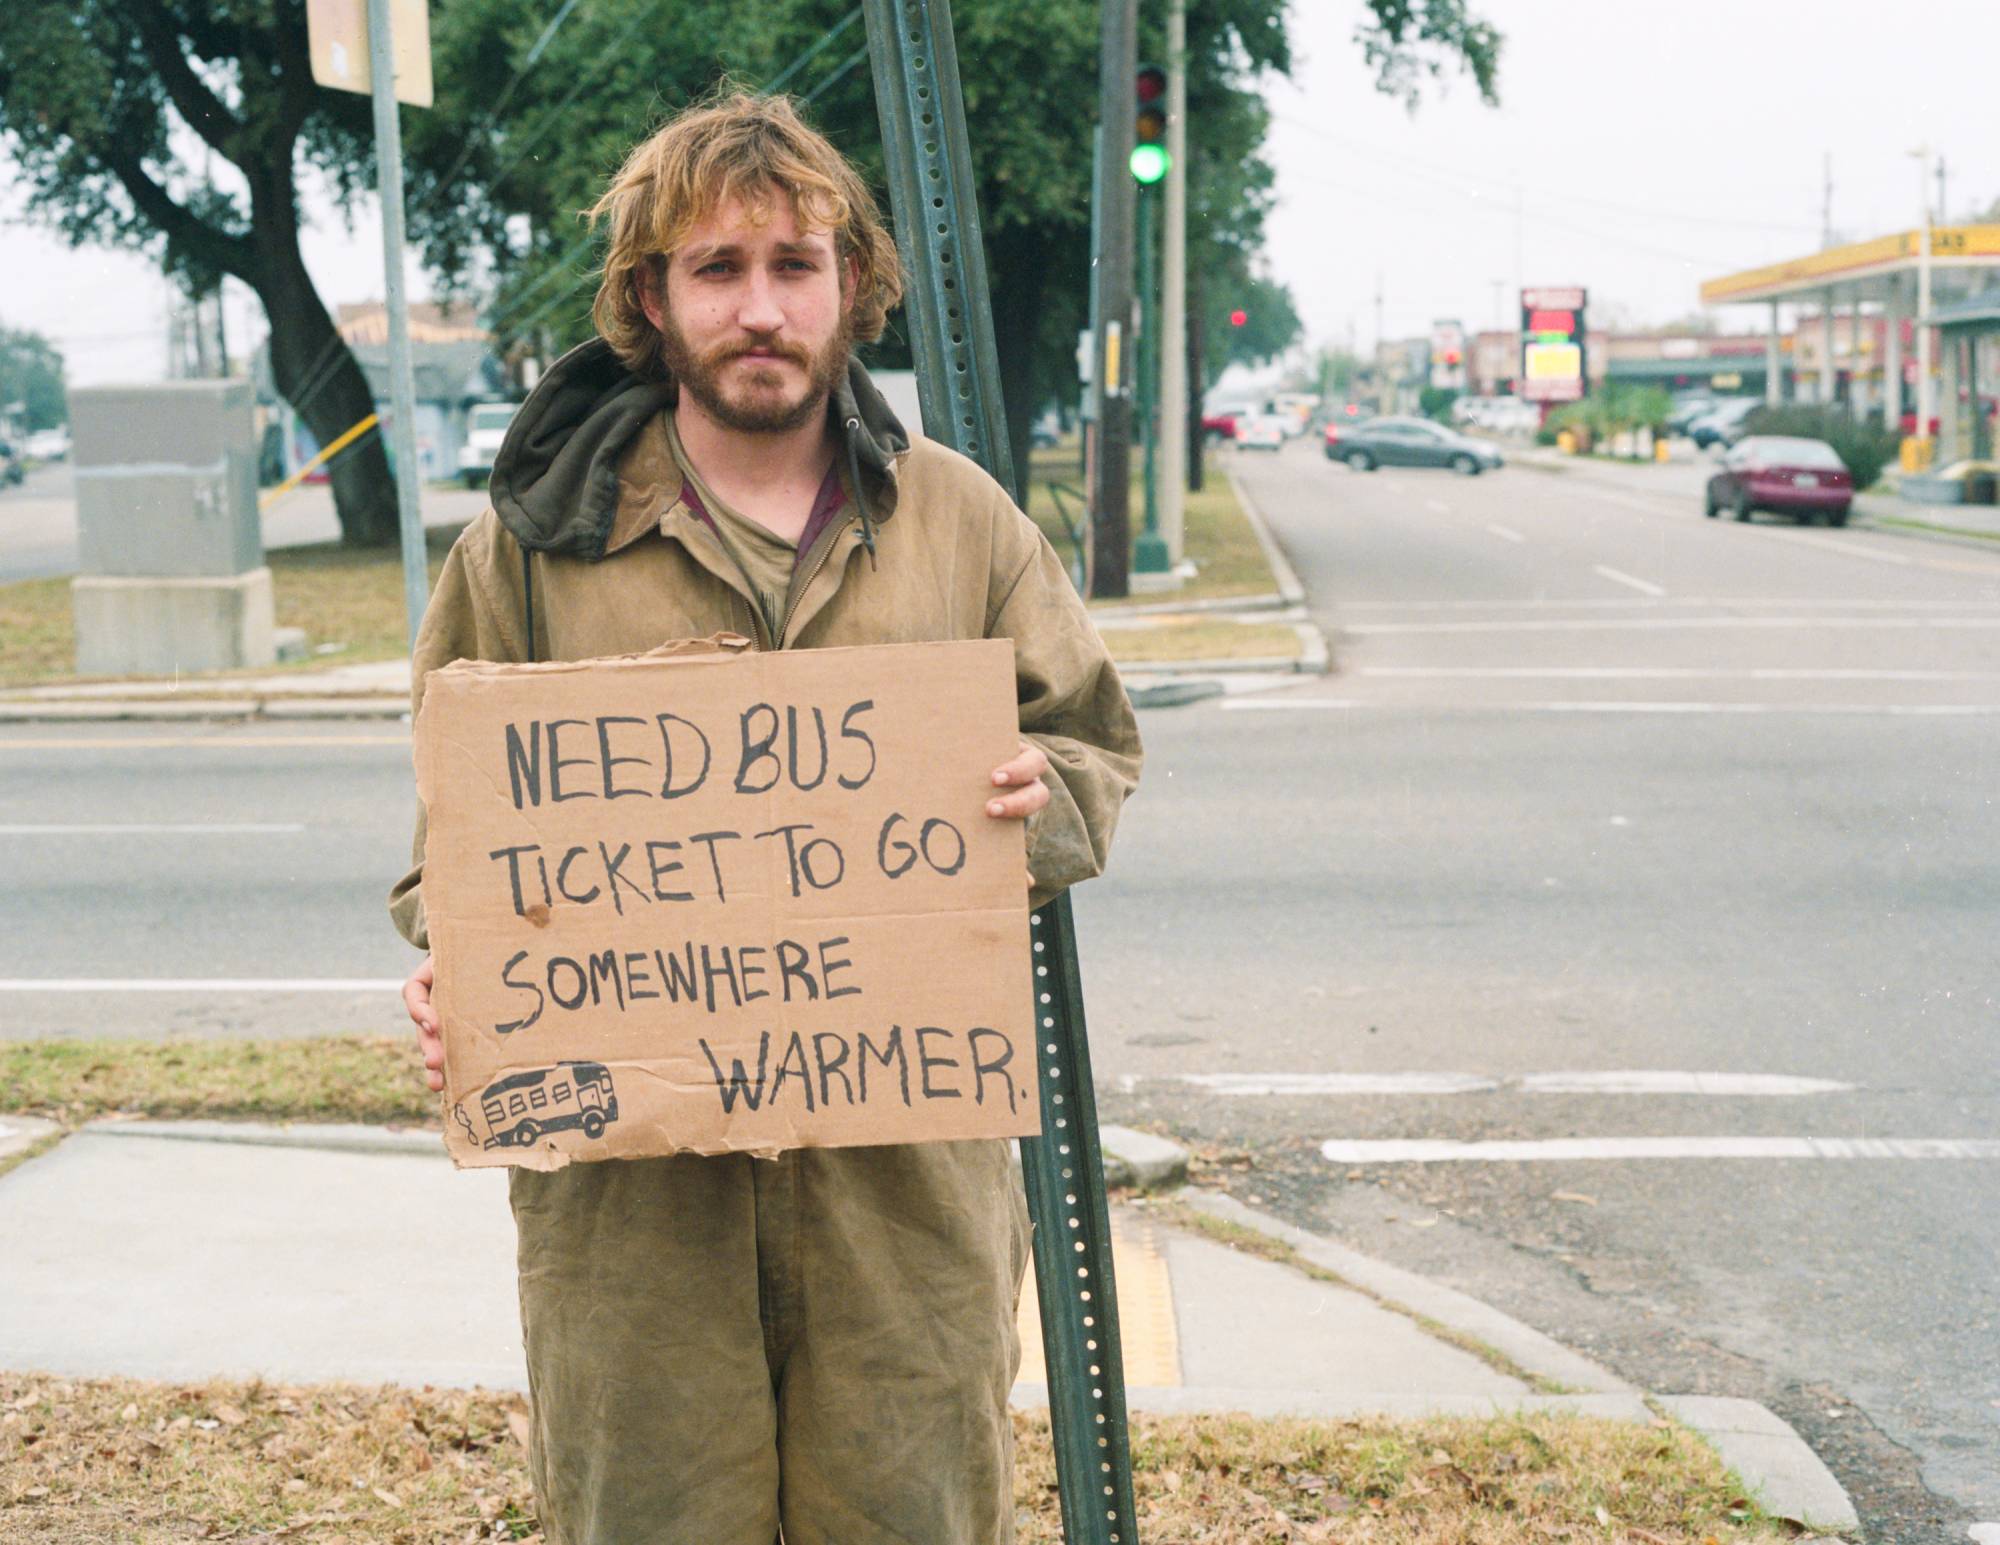 NEED BUS
TICKET TO GO
SOMEWHERE
WARMER.